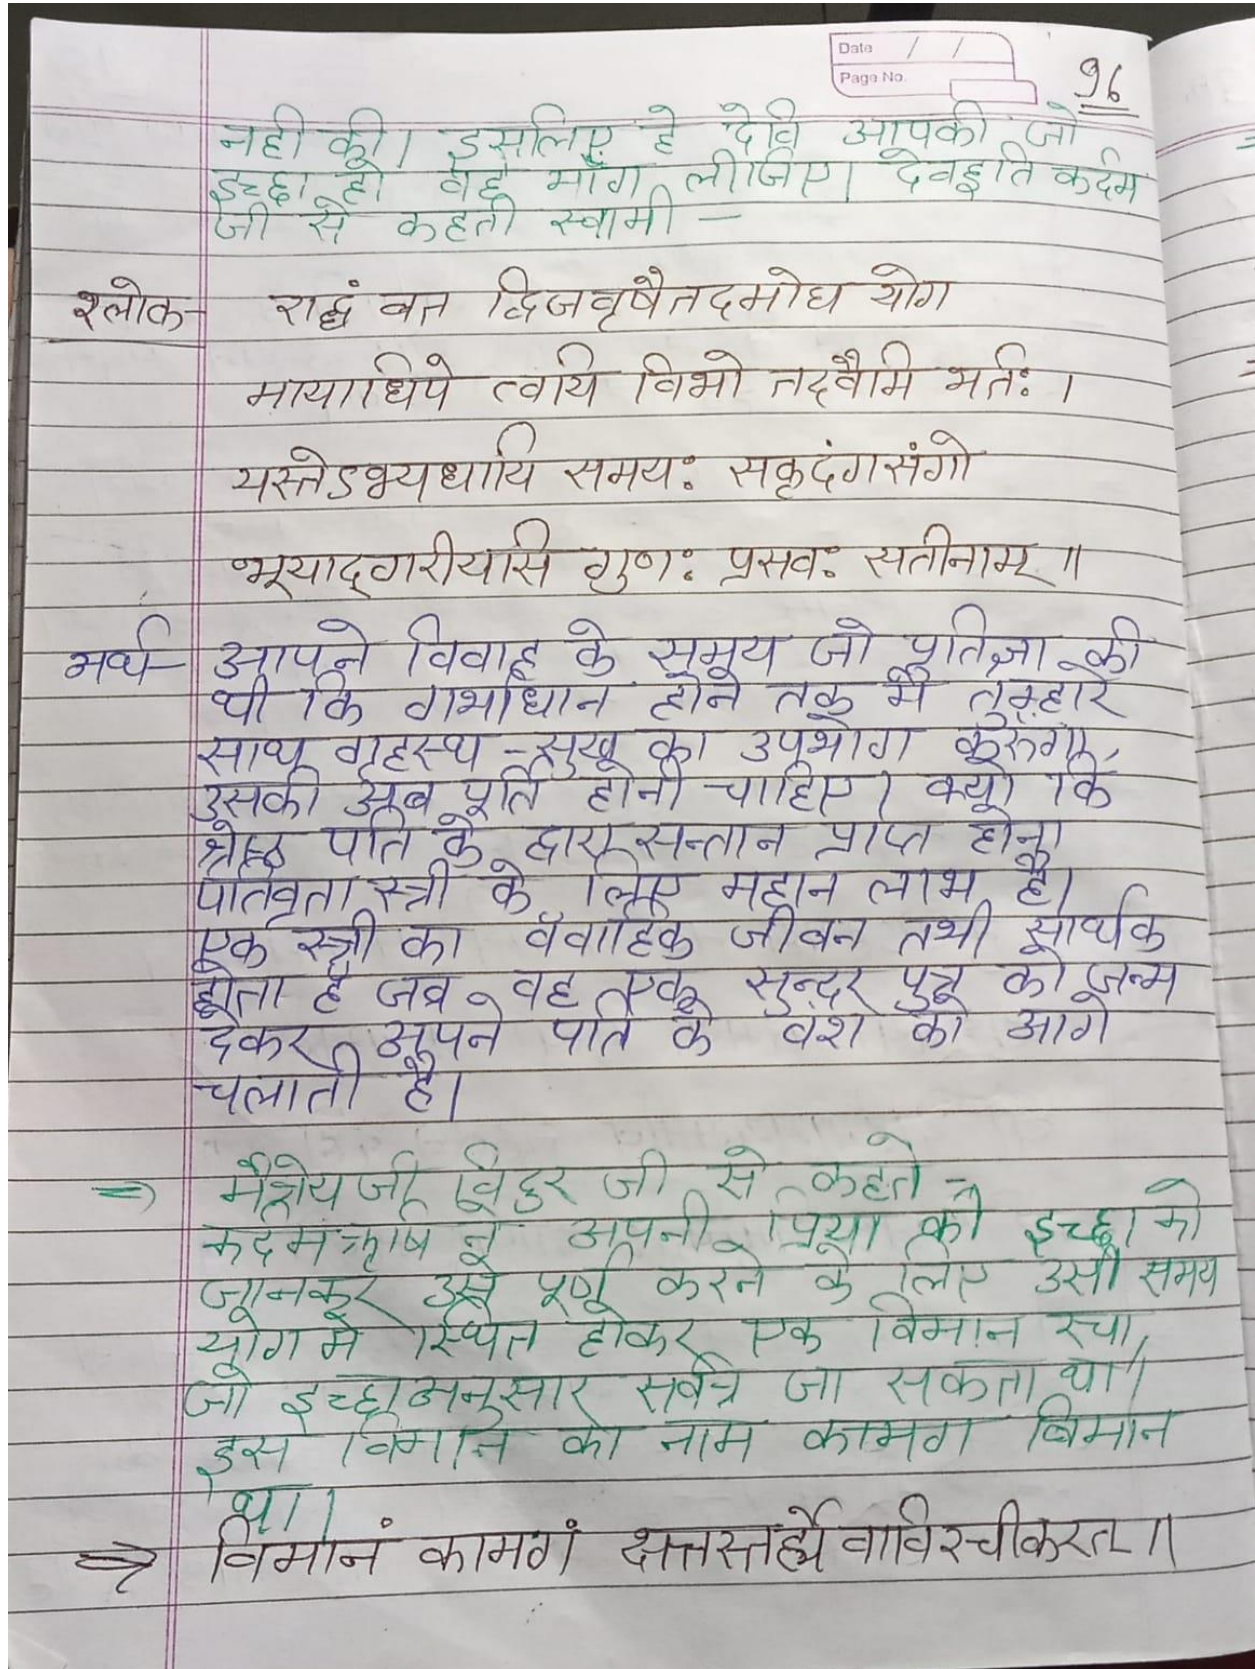 Date / /
Page No.
96
नही की। इसलिए हे देवि आपकी जो
इच्छा हो वह माँग लीजिए। देवहूति कर्दम
जी से कहती स्वामी –
श्लोक- राद्धं बत द्विजवृषैतदमोघ योग
मायाधिपे त्वयि विभो तदवैमि भर्तः ।
यस्तेऽभ्यधायि समयः सकृदंगसंगो
भूयाद्गरीयसि गुणः प्रसवः सतीनाम् ॥
अर्थ- आपने विवाह के समय जो प्रतिज्ञा की
थी कि गर्भाधान होने तक मै तुम्हारे
साथ गृहस्थ - सुख का उपभोग करुगा,
उसकी अब पूर्ति होनी चाहिए। क्यों कि
श्रेष्ठ पति के द्वारा सन्तान प्राप्त होना
पतिवृता स्त्री के लिए महान लाभ है।
एक स्त्री का वैवाहिक जीवन तभी सार्थक
होता है जब वह एक सुन्दर पुत्र को जन्म
देकर अपने पति के वंश को आगे
चलाती है।
⇒ मैत्रेय जी विदुर जी से कहते -
कर्दम ऋषि ने अपनी प्रिया की इच्छा को
जानकर उसे पूर्ण करने के लिए उसी समय
योग मे स्थित होकर एक विमान रचा,
जो इच्छाअनुसार सर्वत्र जा सकता था।
इस विमान का नाम कामग विमान
था।
⇒ विमानं कामगं क्षत्तस्तर्ह्येवाविरचीकरत् ॥